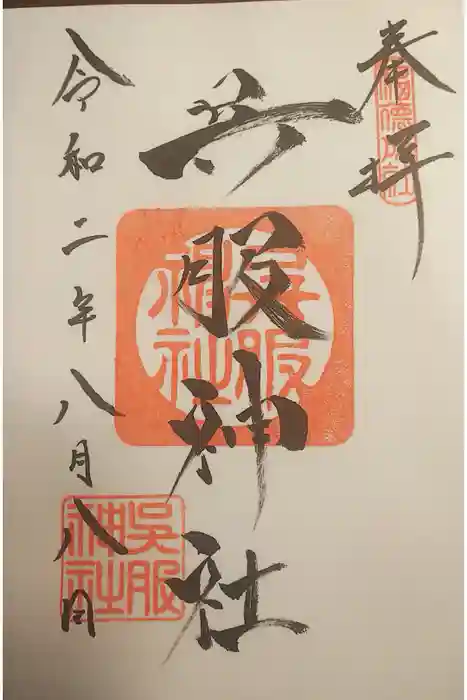 奉拝
呉服神社
呉服
神社
令和二年八月八日
呉服
神社